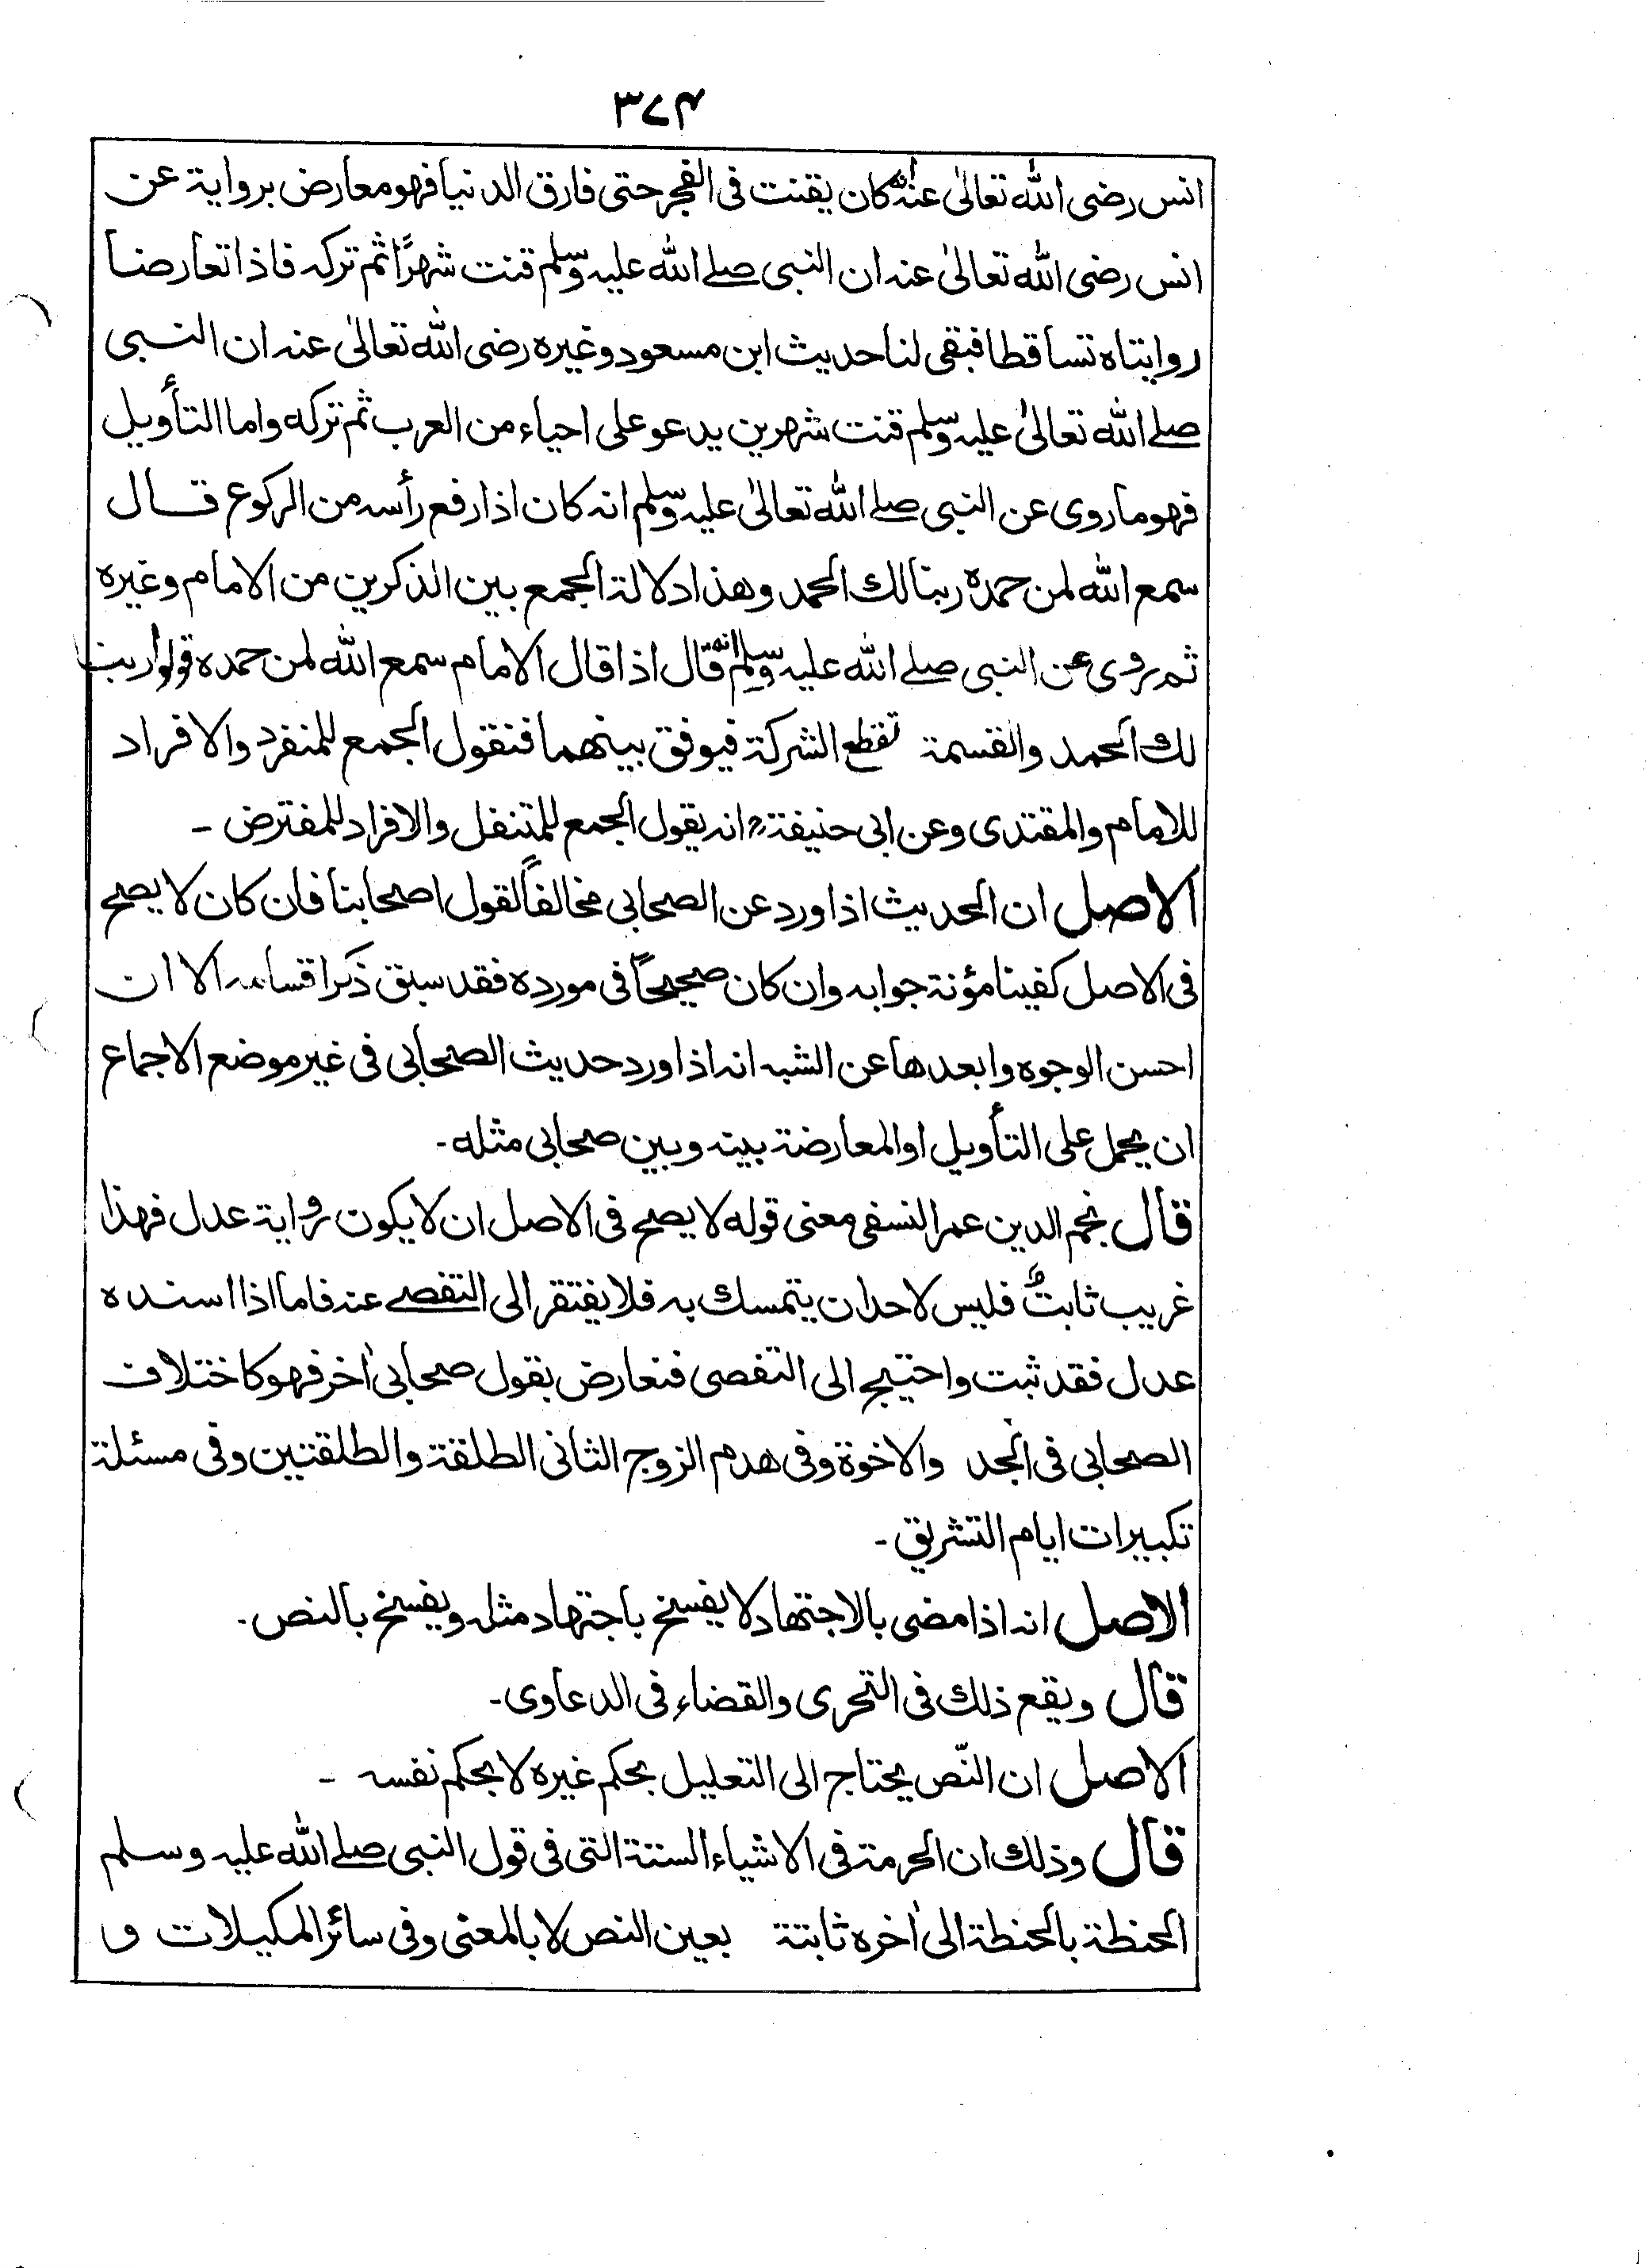 ٣٧٤
انس رضی الله تعالیٰ عنه انه كان يقنت فی الفجر حتی فارق الدنيا فهو معارض برواية عن
انس رضی الله تعالیٰ عنه ان النبی صلے الله عليه وسلم قنت شهرًا ثم تركه فاذا تعارضا
روايتاه تساقطا فبقی لنا حديث ابن مسعود وغيره رضی الله تعالیٰ عنه ان النبی
صلے الله تعالیٰ عليه وسلم قنت شهرين يدعو علی احياء من العرب ثم تركه واما التأويل
فهو ما روی عن النبی صلے الله تعالیٰ عليه وسلم انه كان اذا رفع رأسه من الركوع قال
سمع الله لمن حمده ربنا لك الحمد وهذا دلالة الجمع بين الذكرين من الامام وغيره
ثم روی عن النبی صلے الله عليه وسلم انه قال اذا قال الامام سمع الله لمن حمده قولوا ربنا
لك الحمد والقسمة تقطع الشركة فيوفق بينهما فنقول الجمع للمنفرد والافراد
للامام والمقتدی وعن ابی حنيفةؒ انه يقول الجمع للمتنفل والافراد للمفترض -
الاصل ان الحديث اذا ورد عن الصحابی مخالفاً لقول اصحابنا فان كان لا يصح
فی الاصل كفينا مؤنة جوابه وان كان صحيحاً فی مورده فقد سبق ذكر اقسامه الا ان
احسن الوجوه وابعدها عن الشبه انه اذا ورد حديث الصحابی فی غير موضع الاجماع
ان يحمل علی التأويل او المعارضة بينه وبين صحابی مثله -
قال نجم الدين عمر النسفی معنی قوله لا يصح فی الاصل ان لا يكون رواية عدل فهذا
غريب ثابتٌ فليس لاحد ان يتمسك به فلا يفتقر الی التفصے عنه فاما اذا اسنده
عدل فقد ثبت واحتيج الی التفصی فتعارض بقول صحابی اٰخر فهو كاختلاف
الصحابی فی الجد والاخوة وفی هدم الزوج الثانی الطلقة والطلقتين وفی مسئلة
تكبيرات ايام التشريق -
الاصل انه اذا مضی بالاجتهاد لا يفسخ باجتهاد مثله ويفسخ بالنص -
قال ويقع ذلك فی التحری والقضاء فی الدعاوی -
الاصل ان النّص يحتاج الی التعليل بحكم غيره لا بحكم نفسه -
قال وذلك ان الحرمة فی الاشياء الستة التی فی قول النبی صلے الله عليه وسلم
الحنطة بالحنطة الی اٰخره ثابتة بعين النص لا بالمعنی وفی سائر المكيلات و